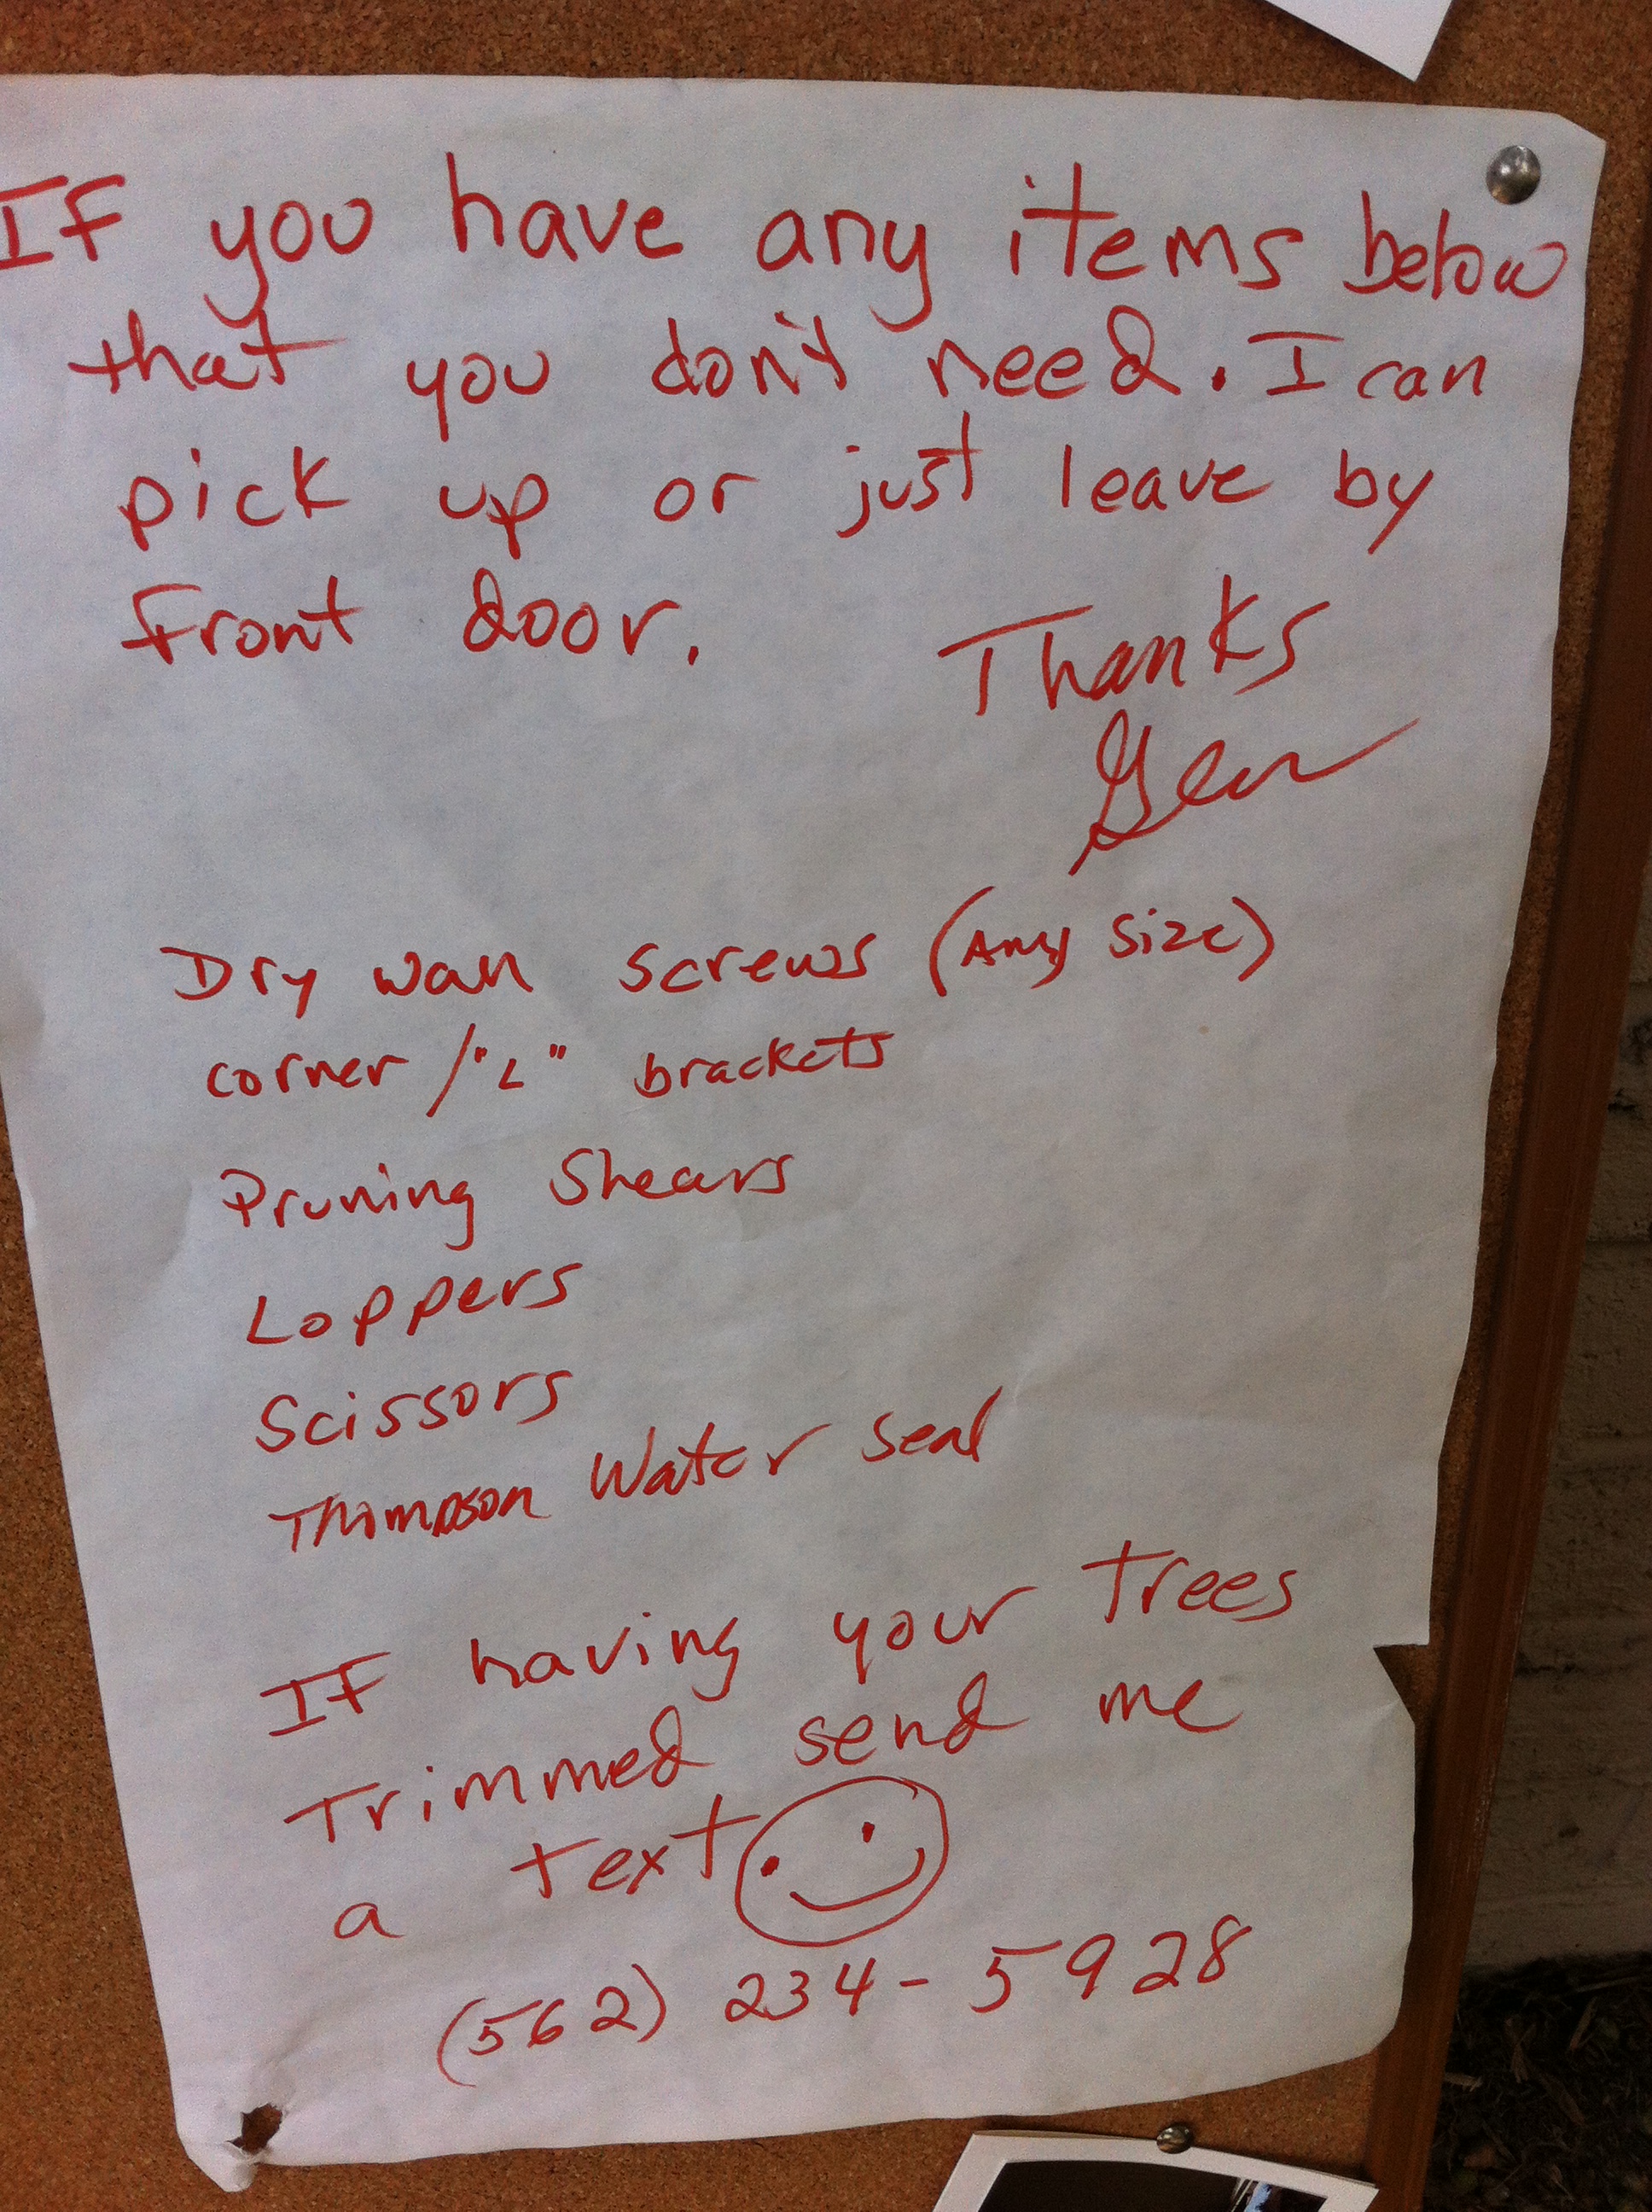 If you have any items below
that you don't need. I can
pick up or just leave by
front door.
Thanks
Dry wall screws (Any size)
corner / "L" brackets
Pruning Shears
Loppers
Scissors
Thompson Water Seal
If having your trees
Trimmed send me
a text
(562) 234-5928